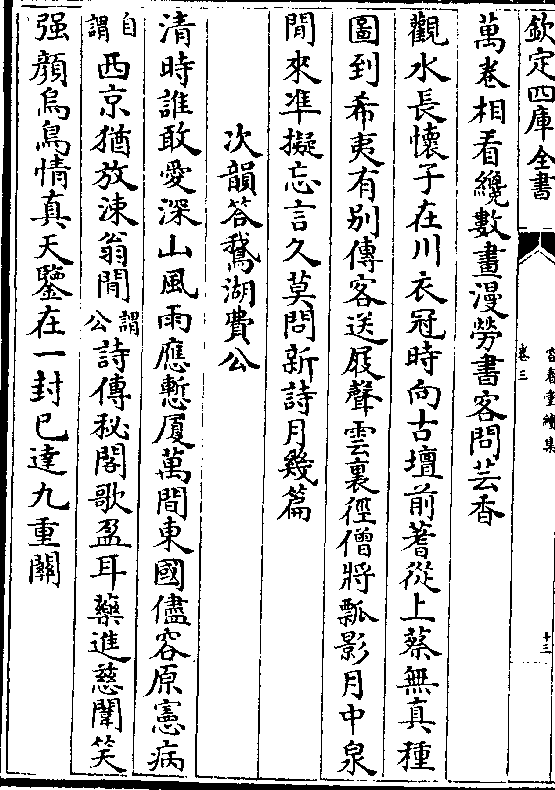 欽定四庫全書
容春堂續集
卷三
十三
萬卷相看纔數畫漫勞書客問芸香
觀水長懷子在川衣冠時向古壇前蓍從上蔡無真種
圖到希夷有別傳客送屐聲雲裏徑僧將瓢影月中泉
閒來準擬忘言久莫問新詩月幾篇
次韻答鵝湖費公
清時誰敢愛深山風雨應慙厦萬間東國儘容原憲病
自謂西京猶放涑翁閒謂公詩傳秘閣歌盈耳藥進慈闈笑
强顔烏鳥情真天鑒在一封已達九重關